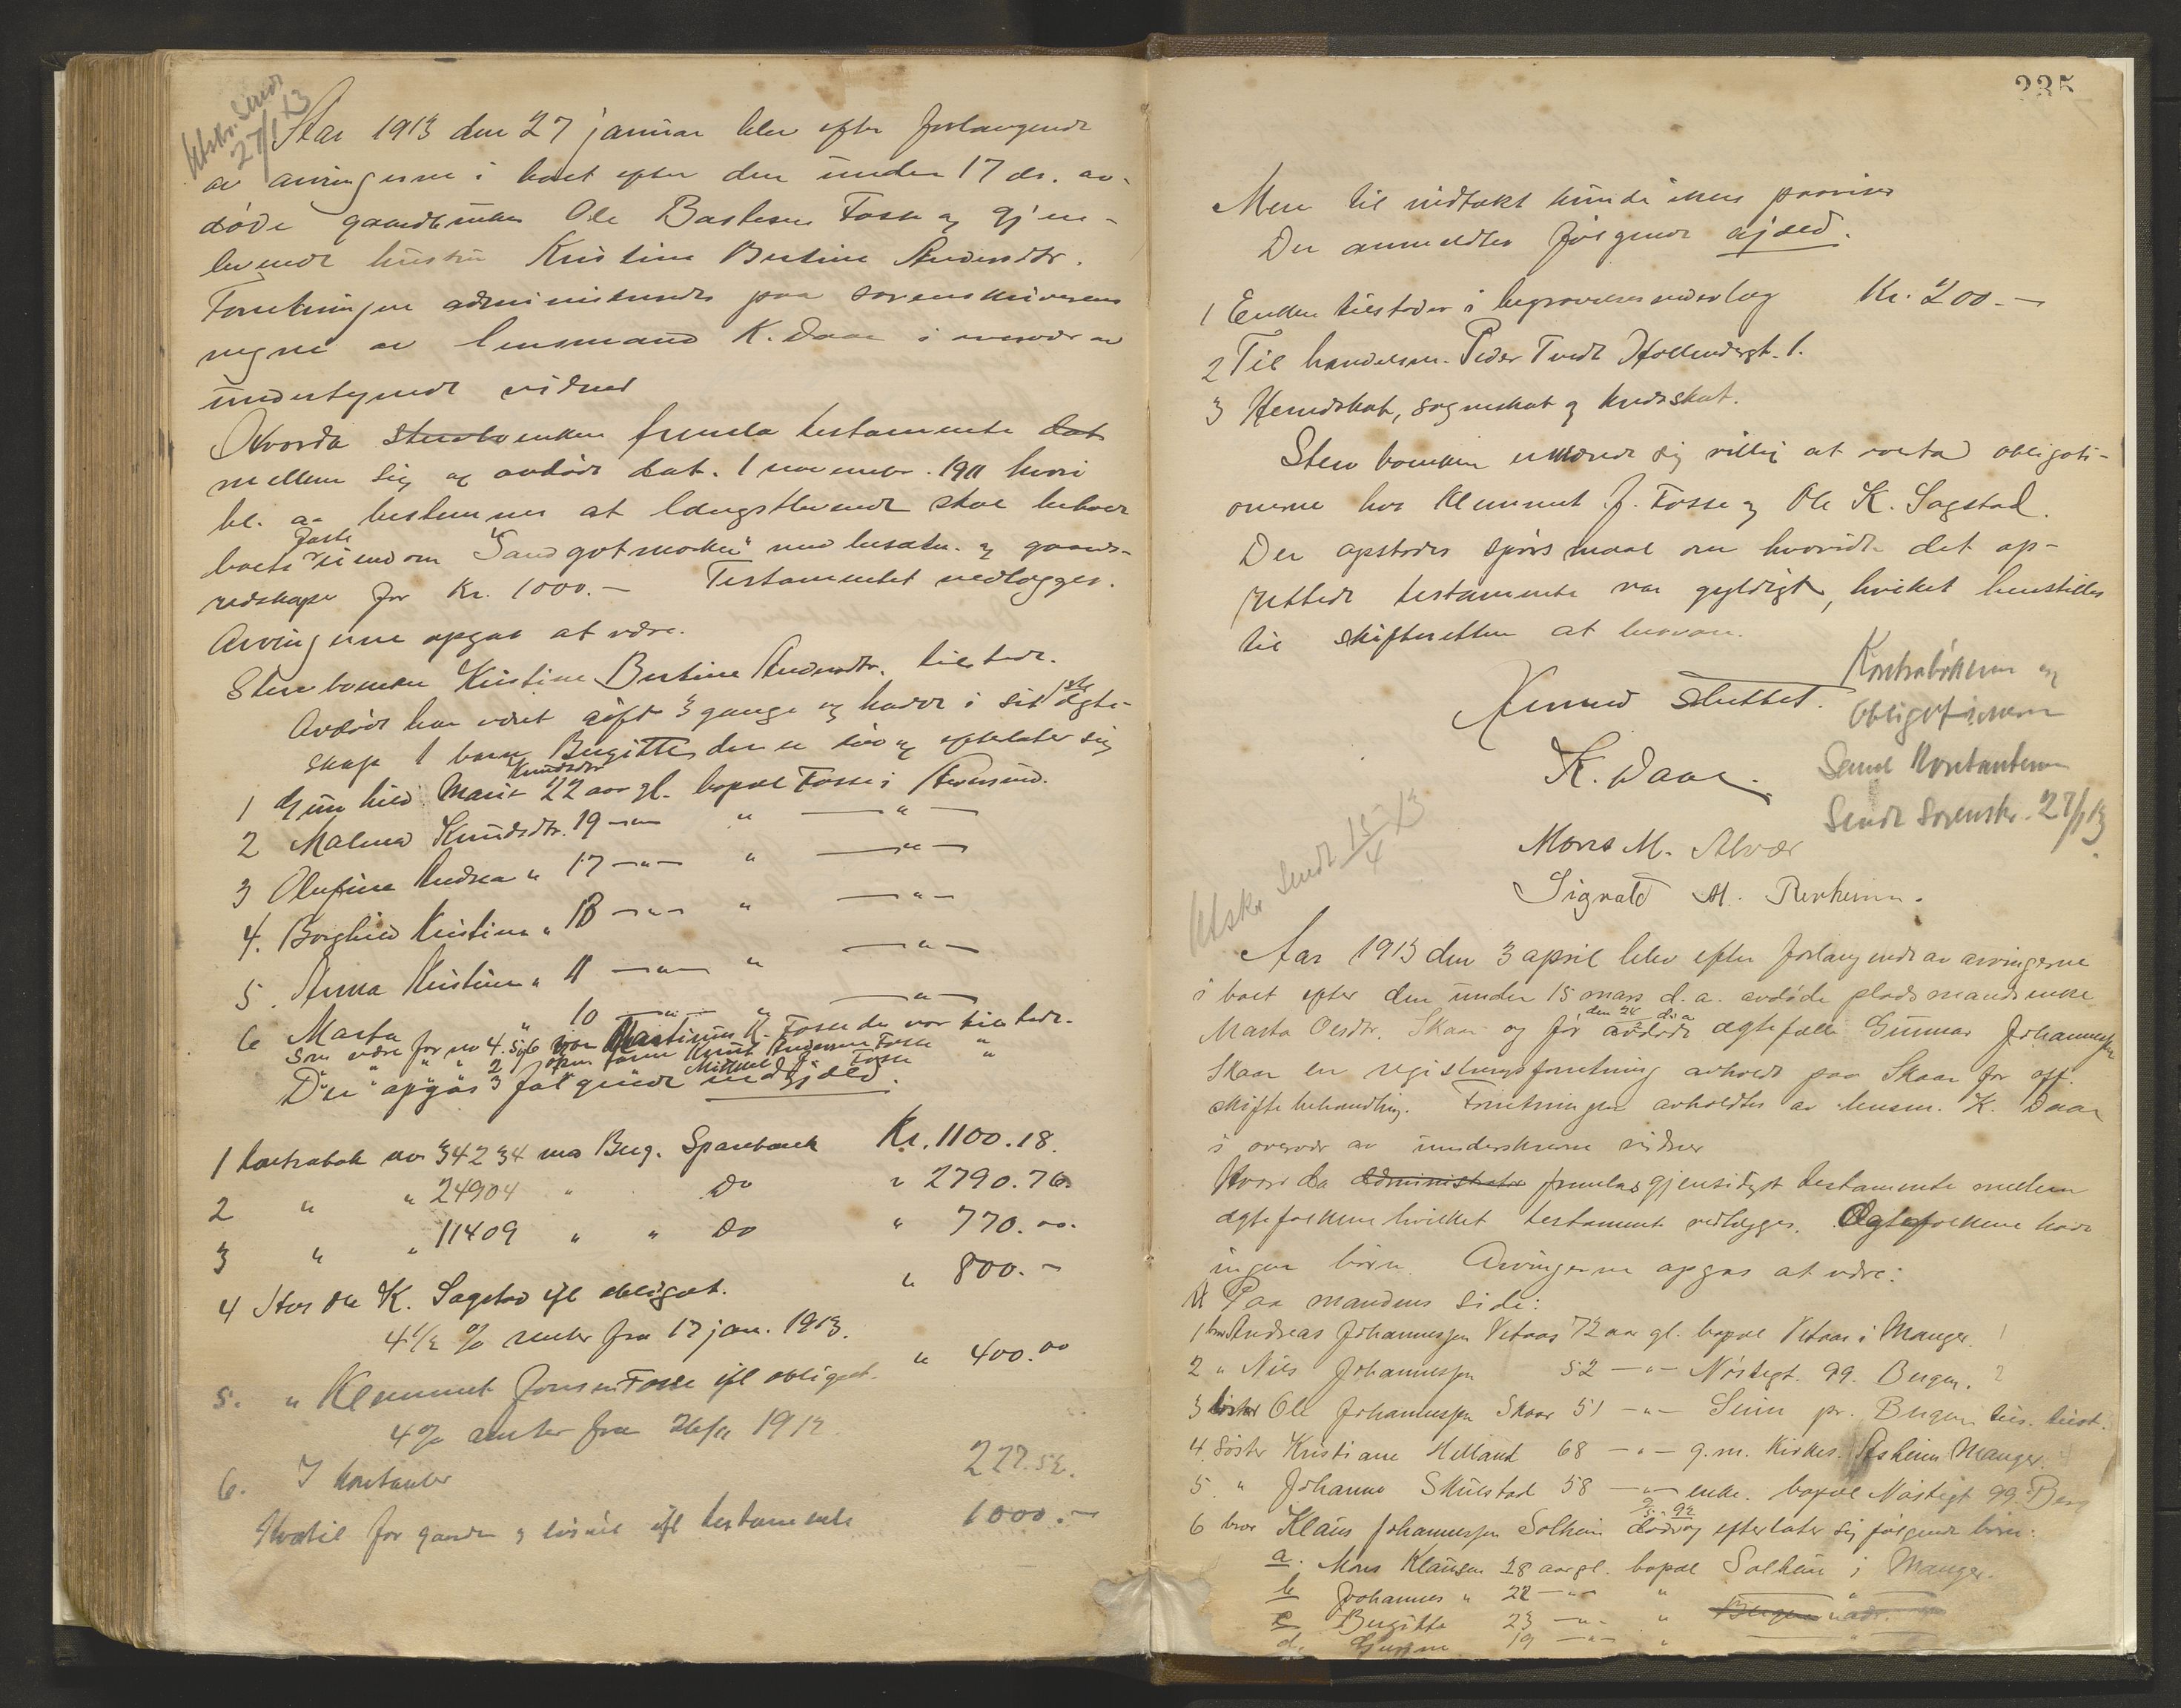 Utskr. sendt
27/1 13
Aar 1913 den 27 januar blev efter forlangende
av arvingerne i boet efter den under 17 ds. av-
døde gaardbruker Ole Bastesen Fosse og gjen-
levende hustru Kristine Bertine Andersdtr.
Forretningen administreredes paa sorenskriverens
vegne av lensmand K. Daae i overvær av
undertegnede vidner
Hvorda Stervboenken fremla testamente dat
mellem sig og avdøde dat. 1 november 1911 hvori
bl. a. bestemmes at længstlevende skal beholde
boets faste eiendom "Sandgotmarken" med besætn. og gaards-
redskaper for Kr. 1000.— Testamentet vedlægges.
Arvingerne opgas at være.
Stervboenken Kristine Bertine Andersdtr. tilstede.
Avdøde har været gift 3 gange og havde i sit 1ste egte-
skap 1 barn Birgitte der er død og efterlater sig
1 Gunhild Marie Knudsdtr 22 aar gl. bopæl Fosse i Alversund.
2 Malena Knudsdtr. 19 —"— " —"—
3 Olufine Andrea " 17 —"— " —"—
4. Borghild Kristine " 13 —"— " —"—
5. Anna Kristine " 11 —"— " —"—
6 Marta " 10 —"— " —"—
Som værge for no 4. 5 og 6 Martinus K. Fosse der var tilstede.
" " " " 2 faren Knut Andersen Fosse "
" " " 3 Mikkel Fosse "
Der opgas følgende indgjæld.
1 Kontrabok no 34234 med Berg. Sparebank Kr. 1100.18.
2 " " 24904 " Do " 2790.76.
3 " " 11409 " " Do " 770.00.
4 Hos Ole K. Sagstad ifl obligat. " 800.—
4 1/2 % renter fra 17 jan. 1913.
5. " Klemmet Jonsen Fosse ifl obligat. " 400.00
4% renter fra 26/11 1912
6. I kontanter 227.52.
Hertil for gaarden og løsøre ifl testamente 1000.—
335
Mere til indtækt kunde ikke paavises
Der anmeldtes følgende gjæld.
1 Enken tilstaaes i begravelsesutlæg Kr. 200.—
2 Til handelsm. Peder Tvedt Hollendergt. 1.
3 Herredskat, sogneskat og kredsskat.
Stervboenken erklærede sig villig at motta obligati-
onerne hos Klemmet J. Fosse og Ole K. Sagstad.
Der opstodes spørsmaal om hvorvidt det op-
rettede testamente var gyldigt, hvilket henstilles
til skifteretten at besvare.
Hermed sluttet.
K. Daae.
Kontrabøkerne og
obligationerne
samt kontanterne
sendt Sorenskr. 27/1 13
Mons M. Alvær
Sigvald M. Revheim.
Utskr sendt 15/4 13
Aar 1913 den 3 april blev efter forlangende av arvingerne
i boet efter den under 15 mars d. a. avdøde pladsmandsenke
Marta Olsdtr. Skaar og før den 24/2 d. a avdøde ægtefælle Gunnar Johannessen
Skaar en registreringsforretning avholdt paa Skaar for off.
skiftebehandling. Forretningen avholdtes av lensm. K. Daae
i overvær av underskrevne vidner
Hvorda administrator fremlas gjensidigt testamente mellem
ægtefolkene hvilket testament vedlægges. Ægtefolkene havde
ingen børn. Arvingerne opgas at være:
A Paa mandens side:
1 bror Andreas Johannessen Vetaas 72 aar gl. bopæl Vetaas i Manger. 1
2 " Nils Johannessen 52 —"— Nøstegt. 99. Bergen. 2
3 bror Ole Johannessen Skaar 51 —"— Seim pr. Bergen tils. tilst.
4. Søster Kristiane Helland 68 —"— g.m. Kirkes. Askeim Manger.
5. " Johanne Skulstad 58 —"— enke. bopæl Nøstegt 99. Berg
6 bror Klaus Johannessen Solheim død 9/5 92 og efterlater sig følgende børn:
a. Mons Klausen 28 aar gl. bopæl Solheim i Manger.
b Johannes " 22 —"— " —"—
c Birgitte 23 —"— " Bergen u. adr.
d. 19 —"— " —"—